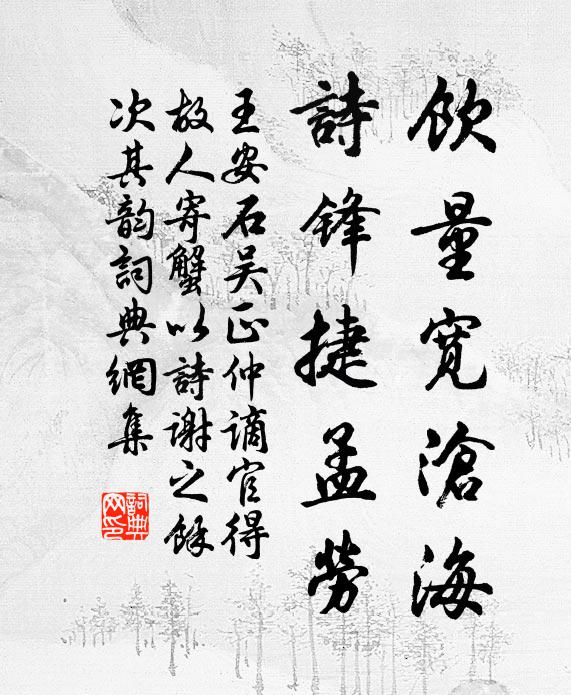 飲量寬滄海
詩鋒捷孟勞
王安石吴正仲謫官得
故人寄蟹以詩謝之餘
次其韵詞典網集
詞典
网印